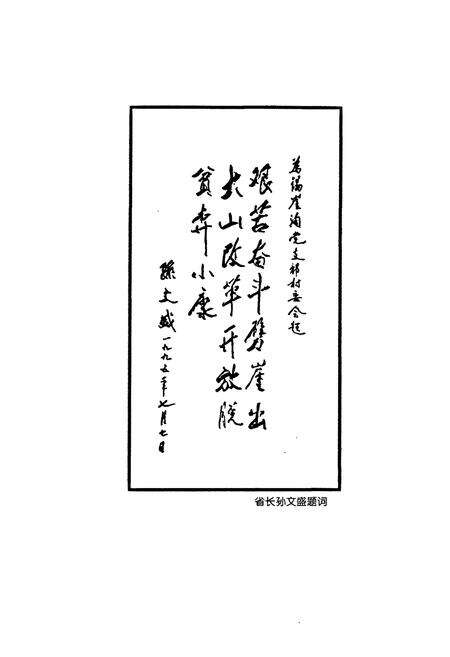 为锡崖沟党支部村委会题
艰苦奋斗劈崖出
大山改革开放脱
贫奔小康
孙文盛一九九五年七月七日
省长孙文盛题词